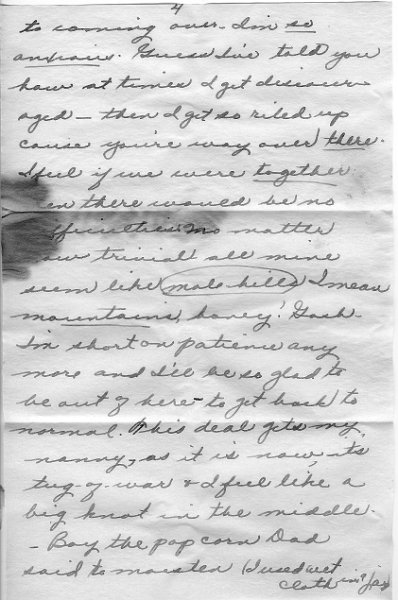 4
to coming over. I'm so
anxious. Guess I've told you
how at times I get discour-
aged - then I get so riled up
cause you're way over there.
I feel if we were together
en there would be no
fficulties no matter
ow trivial all mine
seem like mole hills I mean
mountains, honey! Gosh
I'm short on patience any
more and I'll be so glad to
be out of here - to get back to
normal. This deal gets my
nanny, as it is now it's
tug-of-war & I feel like a
big knot in the middle.
- Boy the pop corn Dad
said to moisten (I used wet
cloth in? jar